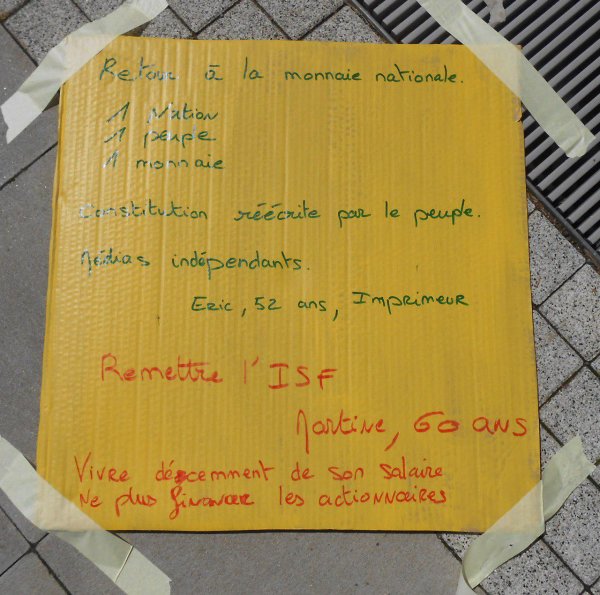 Retour à la monnaie nationale.
1 Nation
1 peuple
1 monnaie
Constitution réécrite par le peuple.
Médias indépendants.
Eric, 52 ans, Imprimeur
Remettre l'ISF
Martine, 60 ans
Vivre décemment de son salaire
Ne plus financer les actionnaires